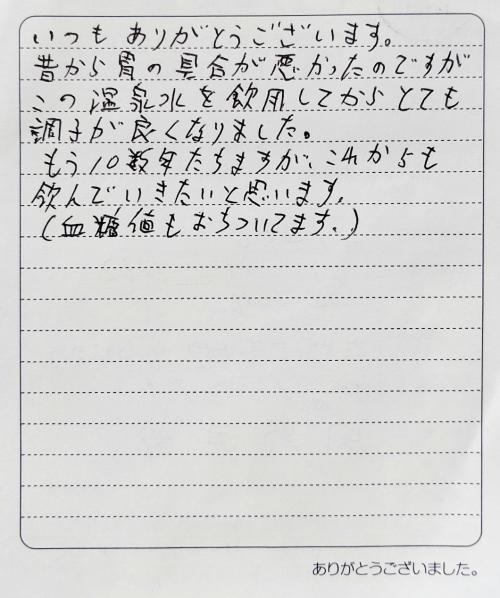 いつもありがとうございます。
昔から胃の具合が悪かったのですが
この温泉水を飲用してからとても
調子が良くなりました。
もう10数年たちますが、これからも
飲んでいきたいと思います。
(血糖値もおちついてます。)
ありがとうございました。